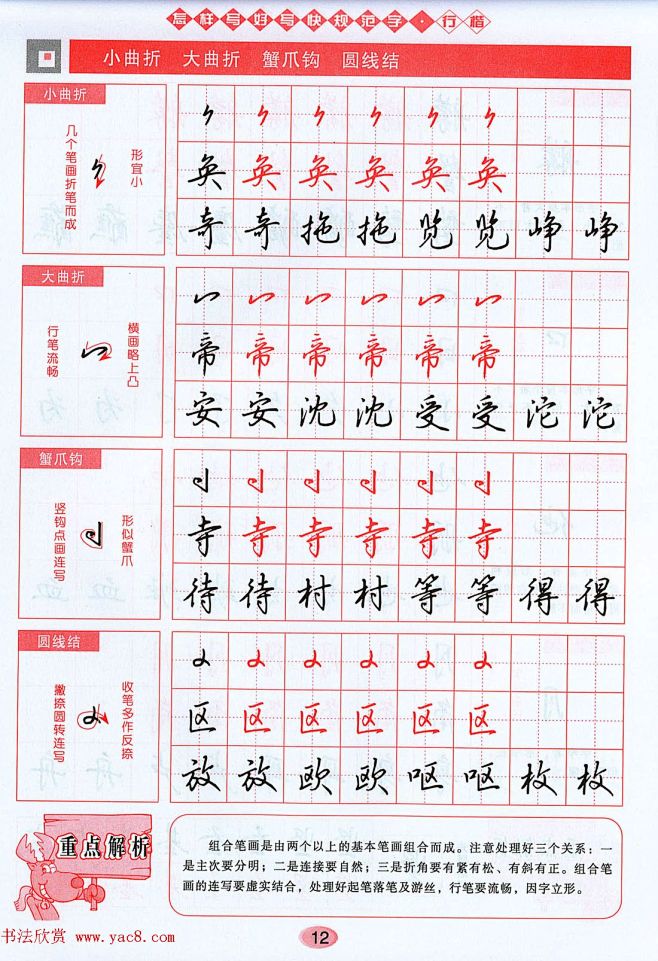 怎样写好写快规范字·行楷
小曲折 大曲折 蟹爪钩 圆线结
小曲折
几个笔画折笔而成
形宜小
奂奂奂奂奂奂
奇奇拖拖览览峥峥
大曲折
行笔流畅
横画略上凸
帝帝帝帝帝帝
安安沈沈受受沱沱
蟹爪钩
竖钩点画连写
形似蟹爪
寺寺寺寺寺寺
待待村村等等得得
圆线结
撇捺圆转连写
收笔多作反捺
区区区区区区
放放欧欧呕呕枚枚
重点解析
组合笔画是由两个以上的基本笔画组合而成。注意处理好三个关系：一
是主次要分明；二是连接要自然；三是折角要有紧有松、有斜有正。组合笔
画的连写要虚实结合，处理好起笔落笔及游丝，行笔要流畅，因字立形。
12
书法欣赏 www.yac8.com